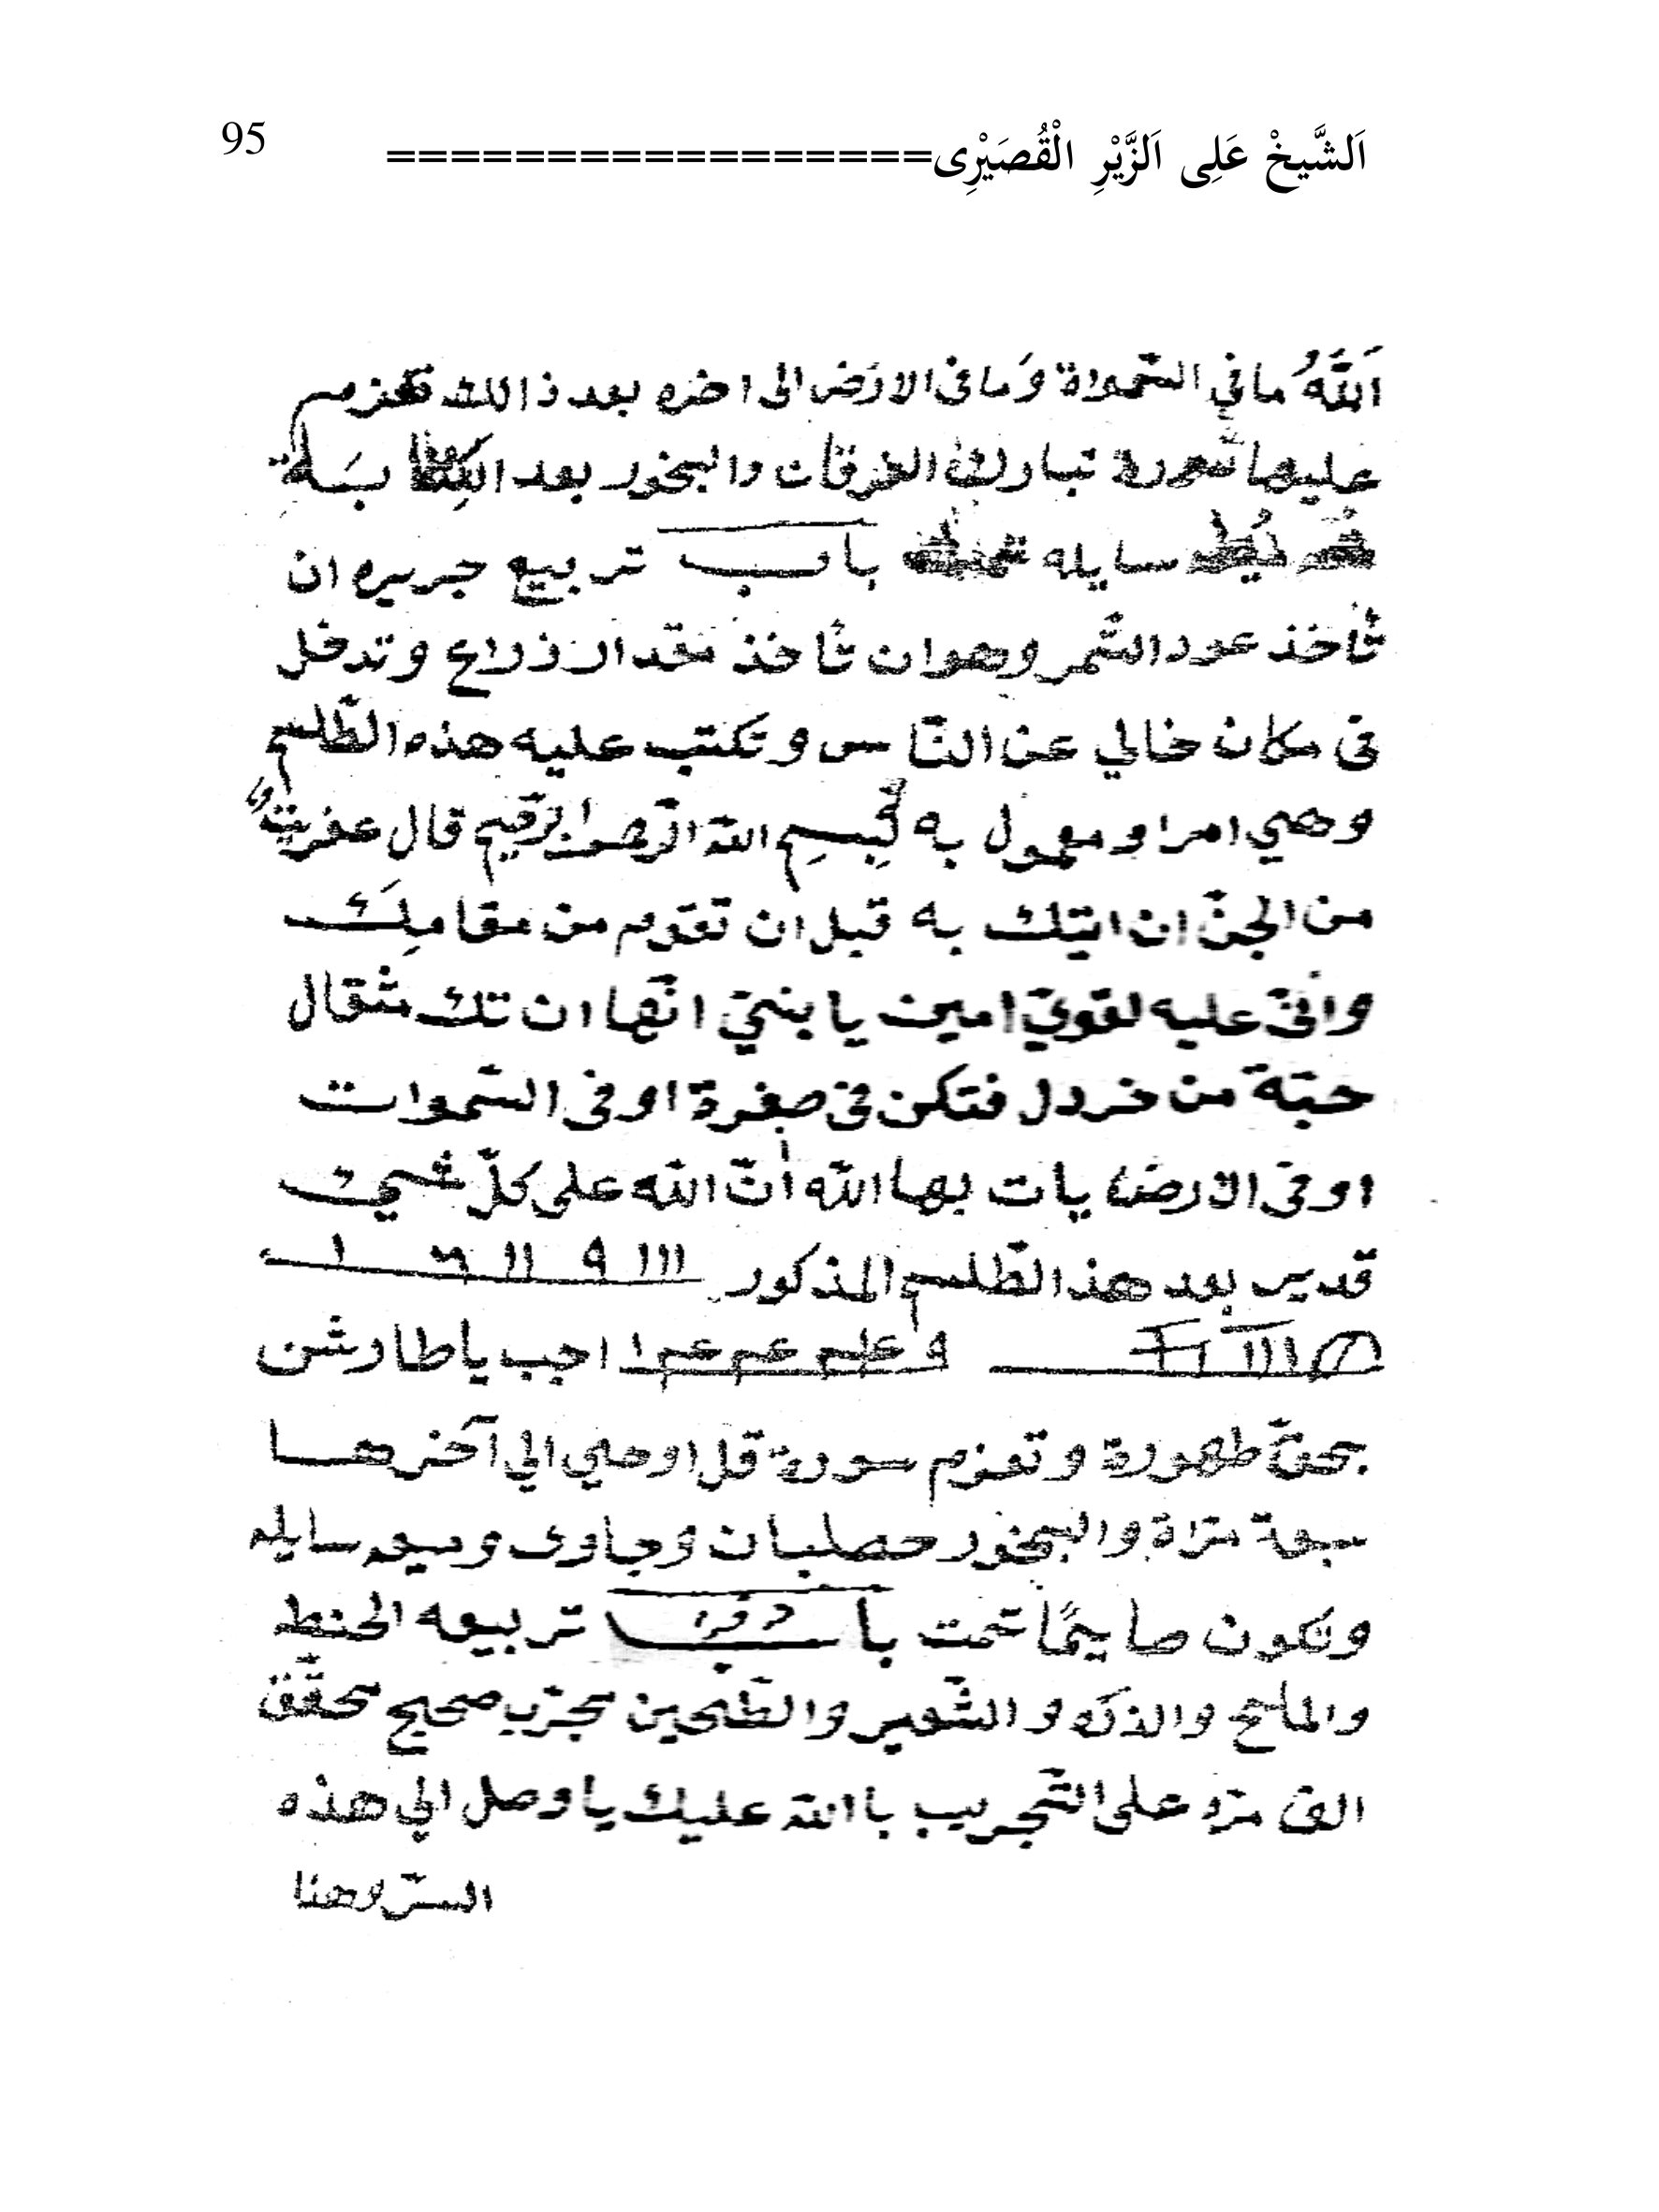 95
اَلشَّيخْ عَلِى اَلزَّيْرِ الْقُصَيْرِى=================
اَللَّهُ ما في السّمواة وَما فى الارَض الى اخره بعد ذالك تعزم
عليها سورة تبارك الفرقان والبخور بعد بسَلة
سايله باب تربيع جريره ان
تأخذ عود التّمر وهو ان تأخذ مقد الاذراع وتدخل
فى مكان خالي عن النّاس وتكتب عليه هذه الطّلسم
وهي امرا و معمول به بِسِم اللّه الرّحمن الرّحيم قال عفريت
من الجنّ ان اتيك به قبل ان تقوم من مقامِكَ
وانّى عليه لقويّ امين يا بنيّ انّها ان تك مثقال
حبّة من خردل فتكن فى صخرة او فى السّموات
او فى الارض يات بها اللّه انّ اللّه على كلّ شىء
قدير بعد هذ الطّلسم المذكور ١١١ ٩ ١١ ٦ ١
اجب يا طارش
بحقّ طهورة وتعزم سورة قل اوحي الي آخرها
سبعة مرّاة والبخور حصلبان وجاوى وميعه سايله
وتكون صايمًا تمت باب تربيعه الحنطه
والملح والذره و الشّعير والطّحين مجرّب صحيح محقّق
الف مرّه على التّجريب باالله عليك يا وصل الي هذه
السرّ وهنا